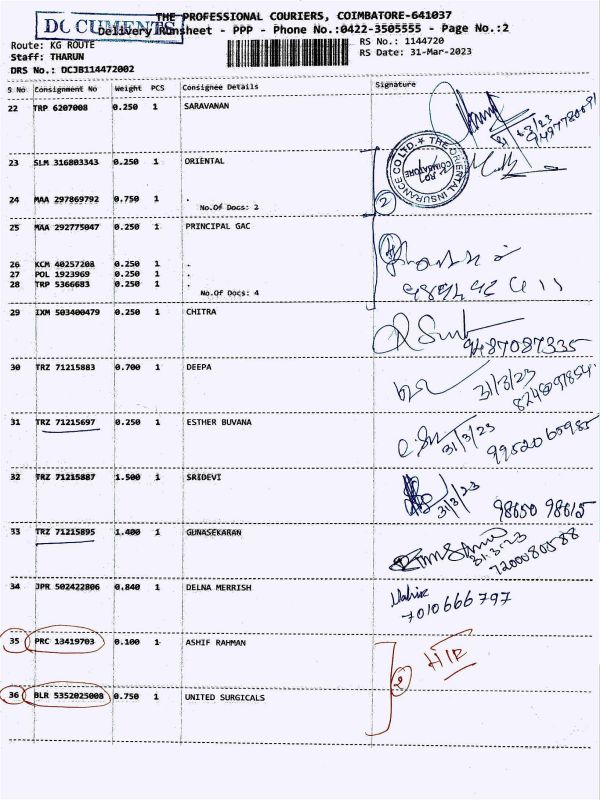 DOCUMENTS
THE PROFESSIONAL COURIERS, COIMBATORE-641037
Delivery Runsheet - PPP - Phone No.:0422-3505555 - Page No.:2
Route: KG ROUTE
RS No.: 1144720
Staff: THARUN
RS Date: 31-Mar-2023
DRS No.: DCJB114472002
S No Consignment No Weight PCS Consignee Details Signature
22 TRP 6207008 0.250 1 SARAVANAN
31/03/23
THE ORIENTAL INSURANCE CO LTD. COIMBATORE
23 SLM 316803343 0.250 1 ORIENTAL
24 MAA 297869792 0.750 1 .
No.Of Docs: 2
2
25 MAA 292775047 0.250 1 PRINCIPAL GAC
26 KCM 40257208 0.250 1 .
27 POL 1923969 0.250 1 .
28 TRP 5366683 0.250 1 .
No.Of Docs: 4
29 IXM 503400479 0.250 1 CHITRA
9487087335
30 TRZ 71215883 0.700 1 DEEPA
31/3/23
31 TRZ 71215697 0.250 1 ESTHER BUVANA
31/3/23
9952065985
32 TRZ 71215887 1.500 1 SRIDEVI
31/3/23
98650 98615
33 TRZ 71215895 1.400 1 GUNASEKARAN
31.3.23
7200080588
34 JPR 502422806 0.840 1 DELNA MERRISH
7010666797
35 PRC 13419703 0.100 1 ASHIF RAHMAN
2
36 BLR 5352025008 0.750 1 UNITED SURGICALS